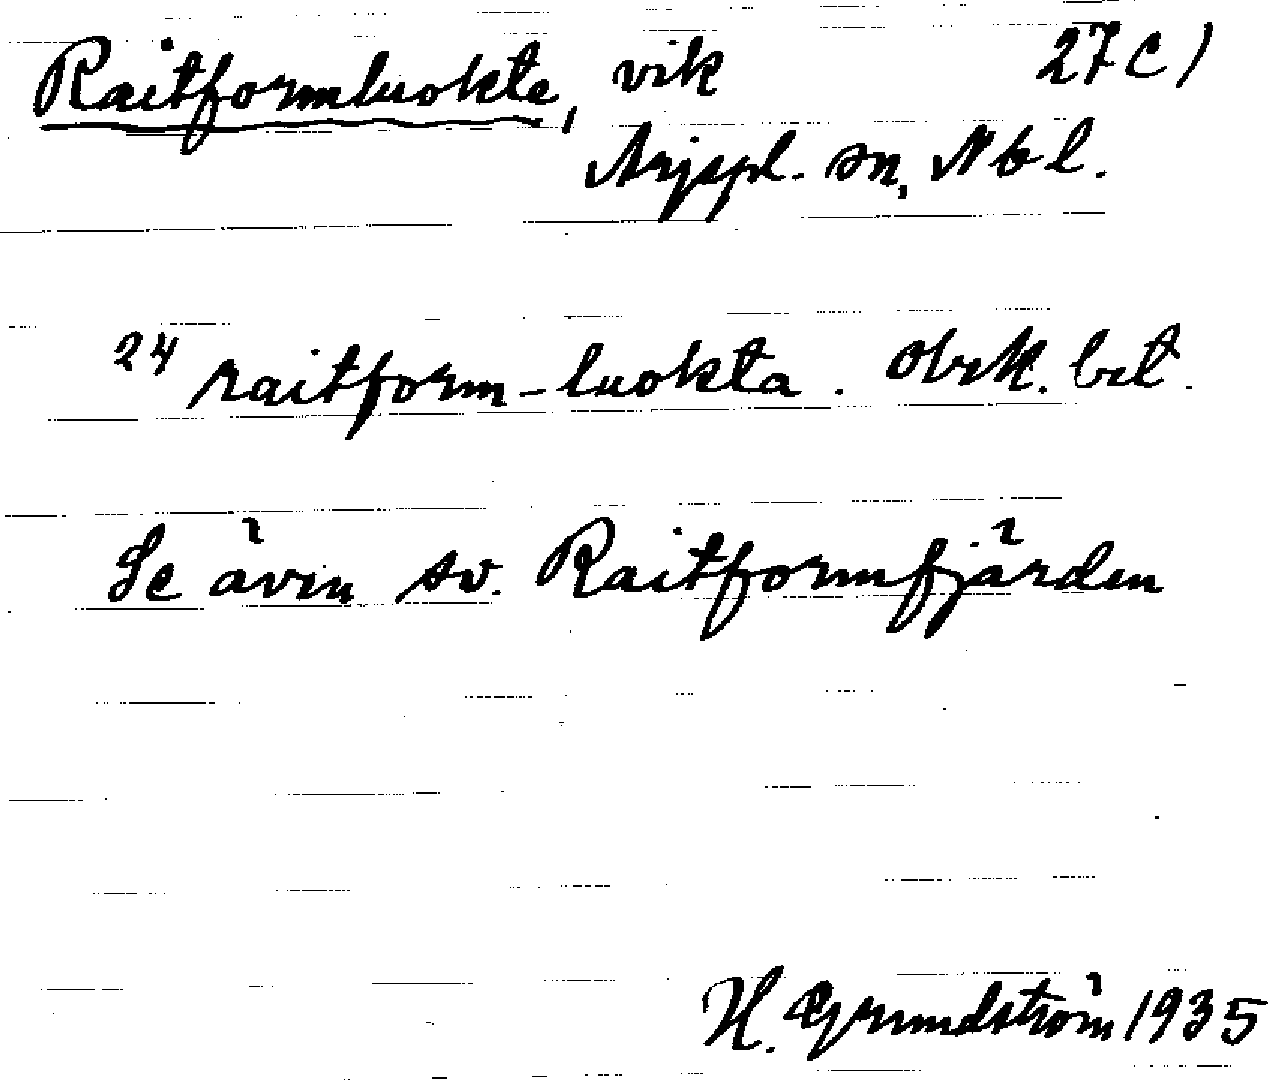 Raitformluokte, vik 27 c)
Arjepl. sn, Nbl.
24 raitform-luokta. Obek. bet.
Se även sv. Raitformfjärden
H. Grundström 1935